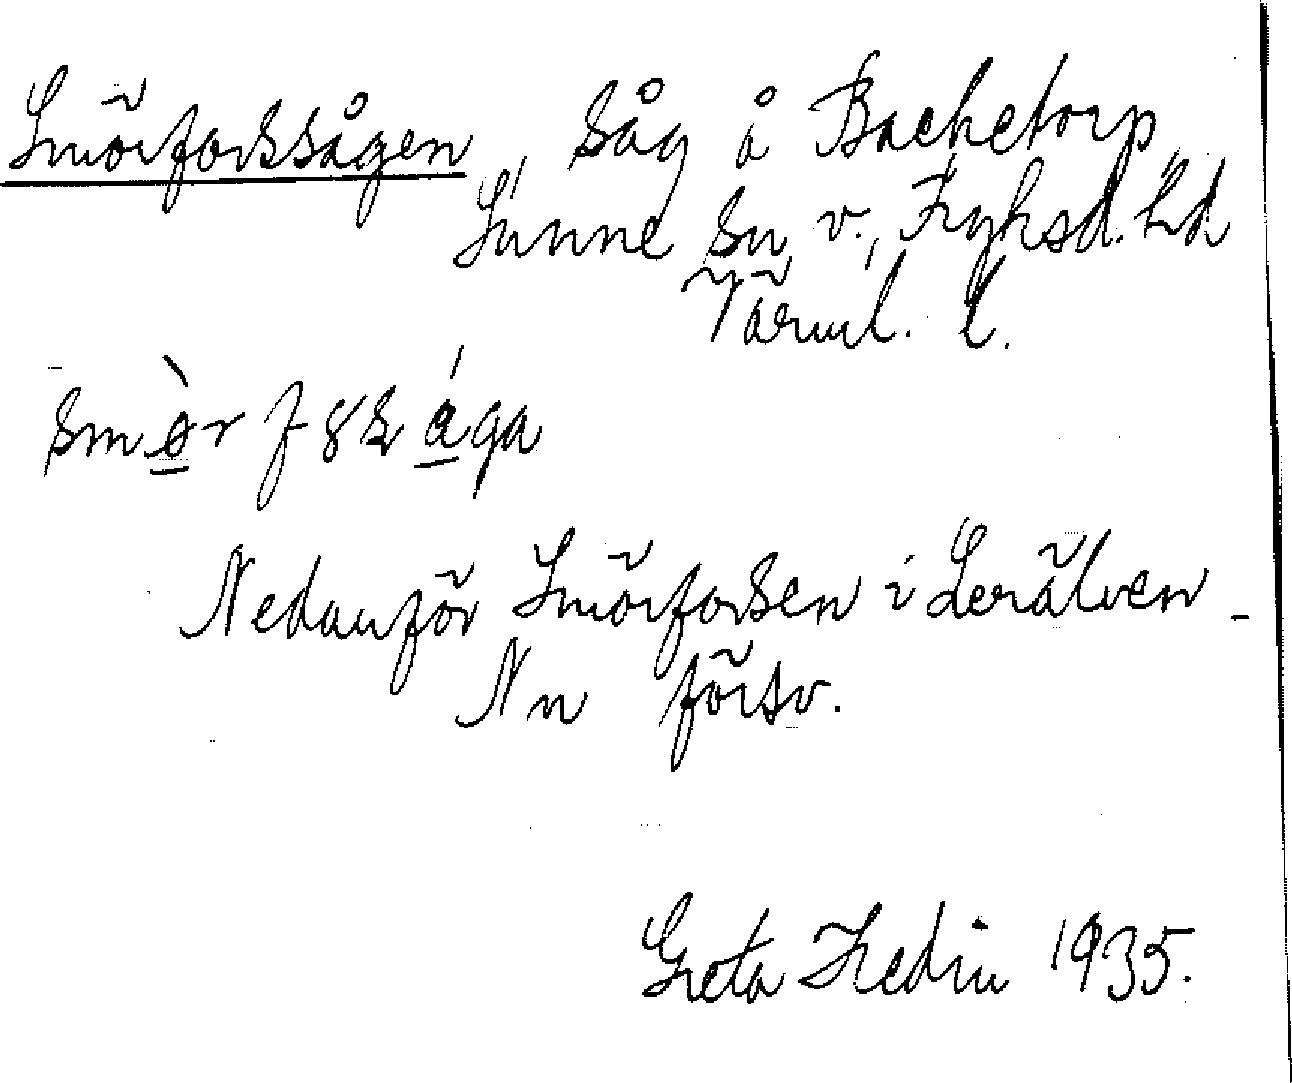 Smörforssågen, såg å Backetorp,
Sunne sn v., Fryksd. hd
Värml. l.
smø̀rfɤsága
Nedanför Smörforsen i Lerälven -
Nn försv.
Greta Hedin 1935.